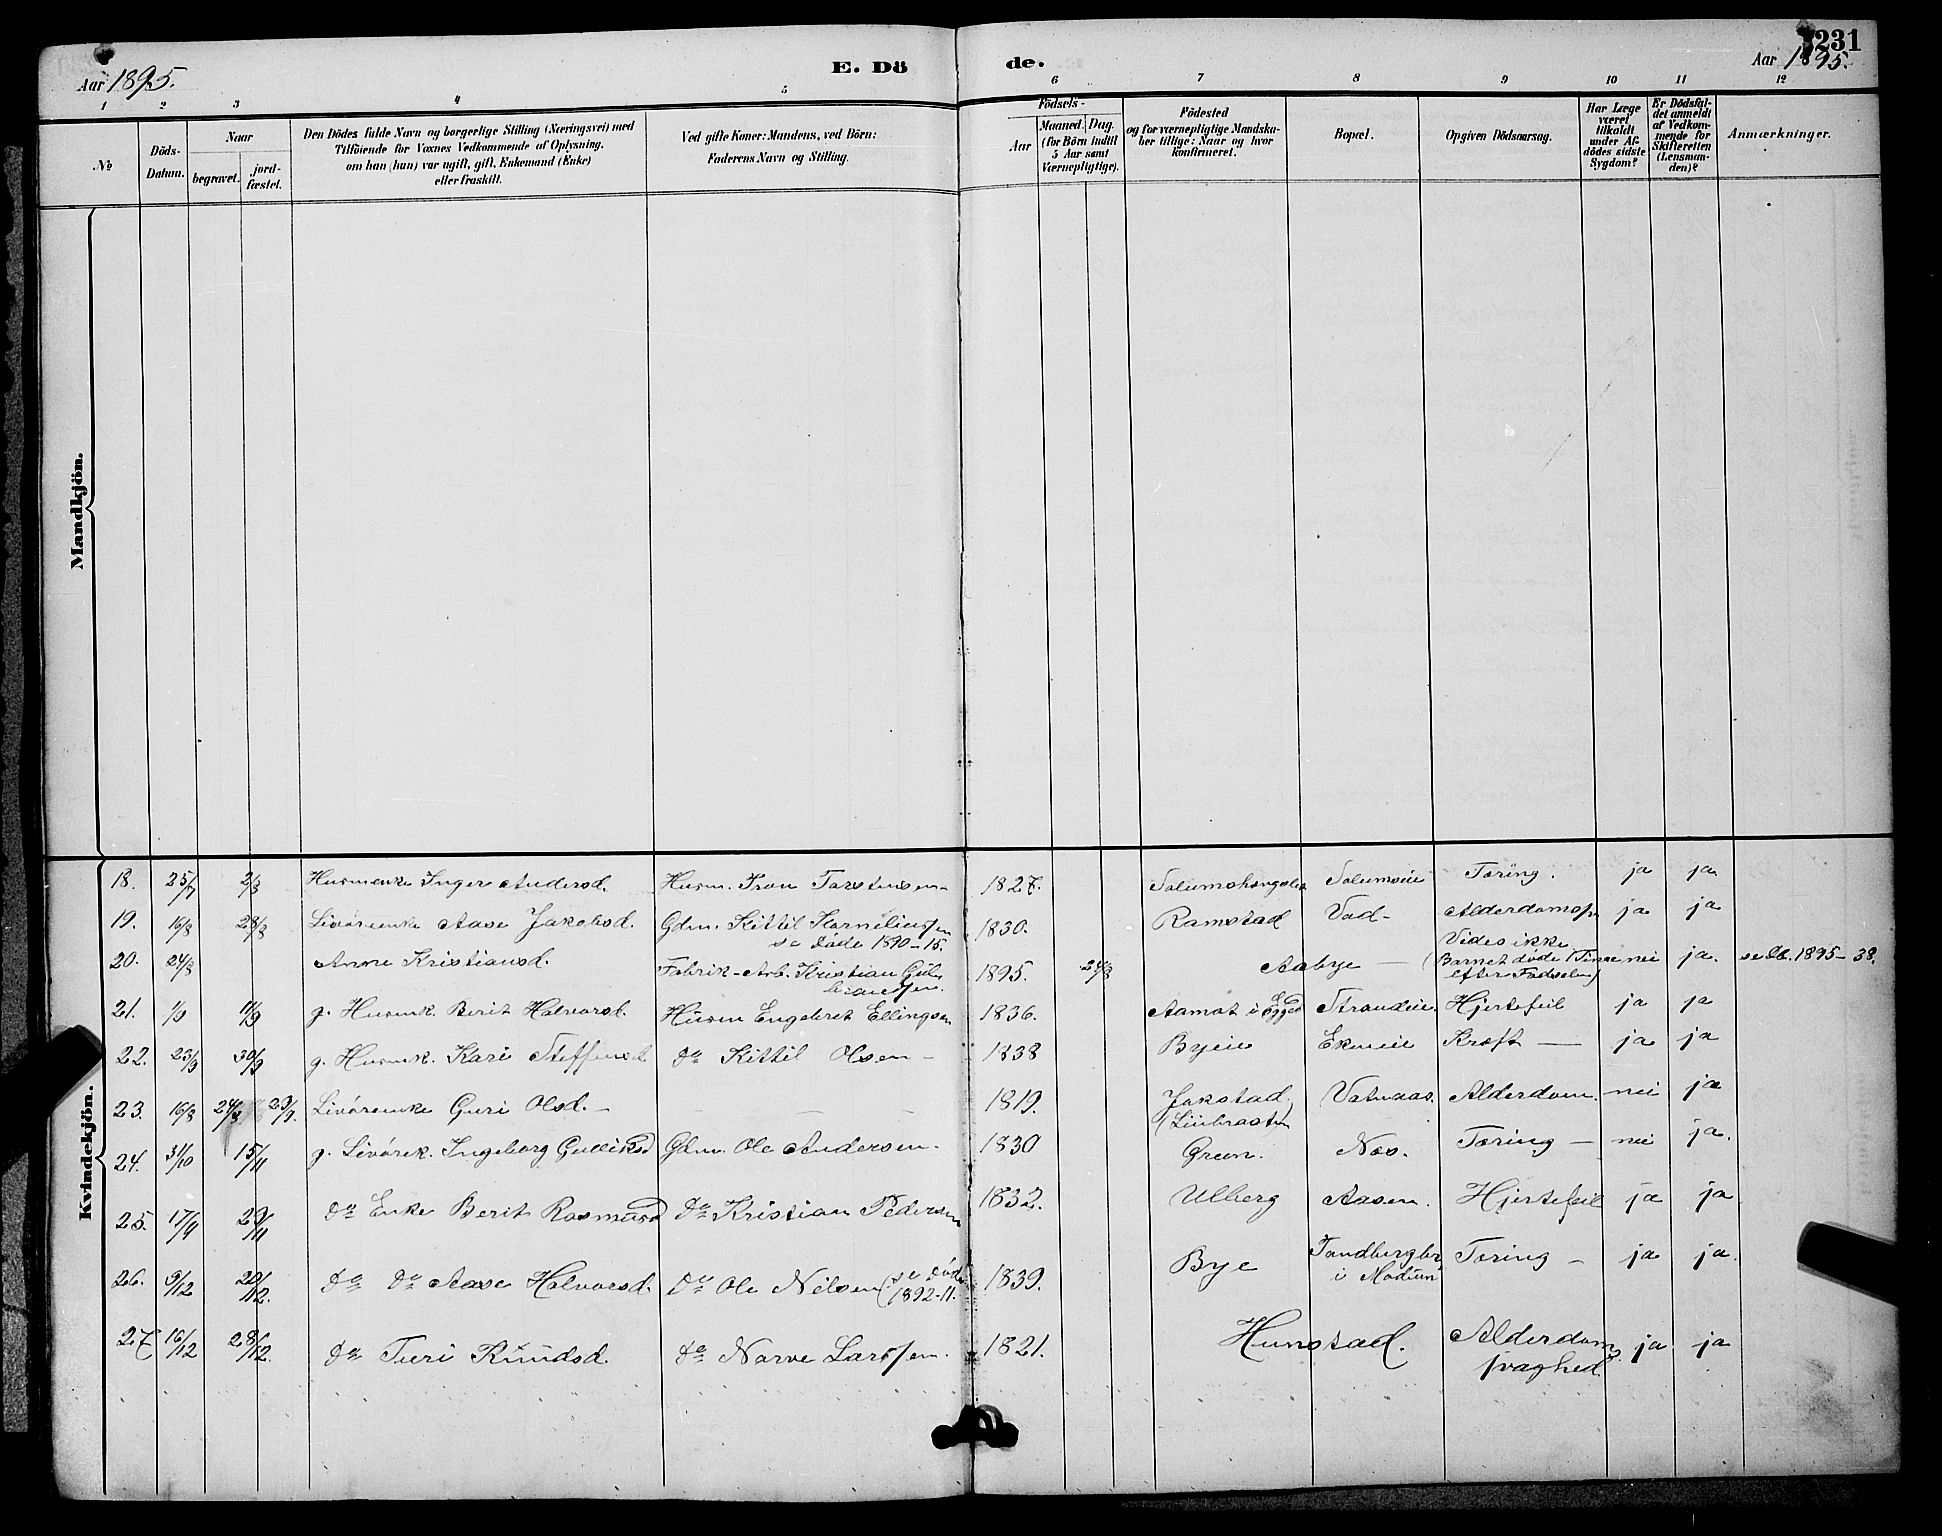 231
Aar 1895.
E. Dö de.
Aar 1895.
1 2 3 4 5 6 7 8 9 10 11 12
No
Döds-Datum.
Naar
begravet.
jord-fæstet.
Den Dödes fulde Navn og borgerlige Stilling (Næringsvei) med
Tilföiende for Voxnes Vedkommende af Oplysning,
om han (hun) var ugift, gift, Enkemand (Enke)
eller fraskilt.
Ved gifte Koner: Mandens, ved Börn:
Faderens Navn og Stilling.
Födsels-
Aar
Maaned. Dag.
(for Börn indtil
5 Aar samt
Værnepligtige).
Födested
og for værnepligtige Mandska-
ber tillige: Naar og hvor
konfirmeret.
Bopæl.
Opgiven Dödsaarsag.
Har Læge
været
tilkaldt
under Af-
dödes sidste
Sygdom?
Er Dödsfal-
det anmeldt
af Vedkom-
mende for
Skifteretten
(Lensman-
den)?
Anmærkninger.
Mandkjön.
Kvindekjön.
18. 25/7 2/8 Husmenke Inger Andersd. Husm. Iron Torstensen 1827. Solumseie Tæring. ja ja
19. 16/8 28/8 Livörenke Aase Jakobsd. Gdm. Kittil Kornelius/en 1830. Ramstad Vad- Alderdomssv ja ja
se Døde 1890-15.
20. 24/8 Anne Kristiansd. Fabrik-Arb. Kristian Gul- 1895. 24/8 Aabye — Vides ikke
(Barnet døde 1 Time nei ja. se lb. 1895-38.
efter Fødselen)
21. 1/9 11/9 g. Husmk. Berit Halvorsd. Husm Engebret Ellingsen 1836. Aamot i Eggedal Strandeie. Hjertefeil ja ja
22. 23/9 30/9 g. Husmk. Kari Steffensd Do Kittil Olsen - 1838 Byeie Ekreeie Kræft — ja ja
23. 16/8 24/8 29/9. Livörenke Guri Olsd. — — — 1819. Jokstad Vatnaas. Alderdom. nei ja
24. 31/10 15/11 g. Livörek. Ingeborg Gulliksd Gdm. Ole Andersen. 1830 Green. Næs. Tæring — nei ja.
25. 17/9 23/11 Do Enke Berit Rasmusd Do Kristian Pedersen 1832. Ulberg Aasen. Hjertefeil ja ja
26. 9/12 20/12. Do Do Aase Halvorsd. Do Ole Nilsen (se Døde 1892-11. 1839. Bye Tandbergbr i Modum Tæring — ja ja.
27 16/12 28/12. Do Turi Knudsd. Do Narve Lars/en. 1821. Hunstad. Alderdoms ja ja
svaghed.